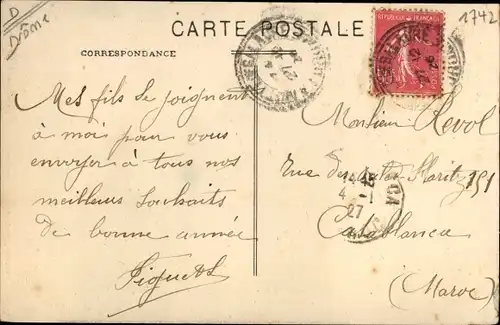 D
Drôme
CARTE POSTALE
1742
RÉPUBLIQUE FRANÇAISE
CORRESPONDANCE
Mes fils se joignent
à moi pour vous
envoyer à tous nos
meilleurs souhaits
de bonne année
Monsieur Revol
rue des 151
Casablanca
(Maroc)
4 - 1
27